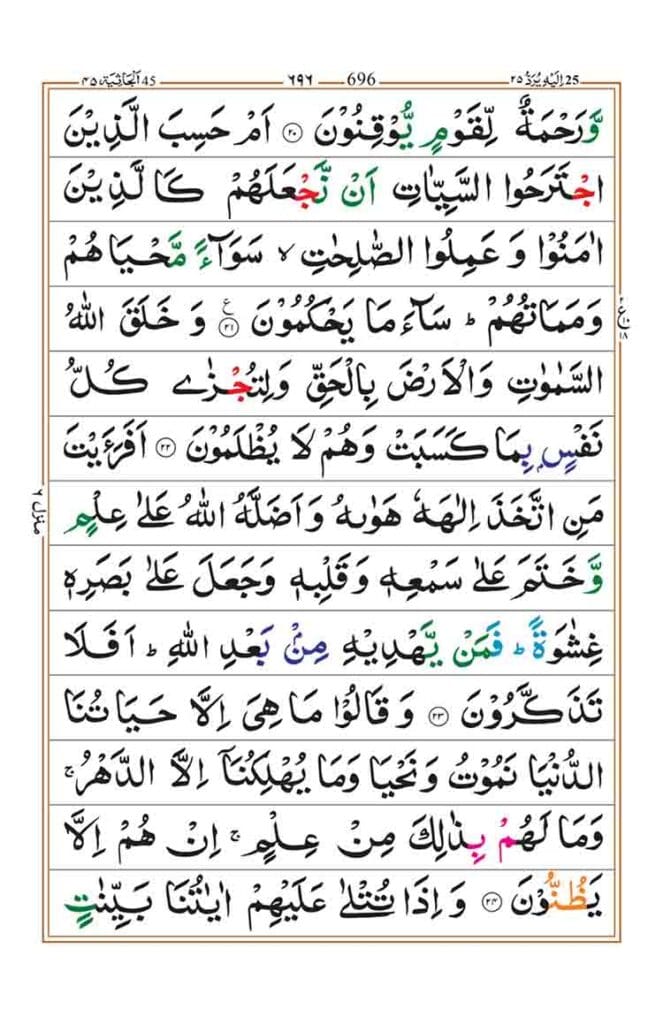 ٤٥ اَلْجَاثِيَة 45 ٦٩٦ 696 ٢٥ اِلَيْهِ يُرَدُّ 25
وَّرَحْمَةٌ لِّقَوْمٍ يُّوْقِنُوْنَ ۝٢٠ اَمْ حَسِبَ الَّذِيْنَ
اجْتَرَحُوا السَّيِّاٰتِ اَنْ نَّجْعَلَهُمْ كَالَّذِيْنَ
اٰمَنُوْا وَعَمِلُوا الصّٰلِحٰتِ ۙ سَوَآءً مَّحْيَاهُمْ
وَمَمَاتُهُمْ ؕ سَآءَ مَا يَحْكُمُوْنَ ۝٢١ ع وَخَلَقَ اللّٰهُ
ع ١٨
السَّمٰوٰتِ وَالْاَرْضَ بِالْحَقِّ وَلِتُجْزٰى كُلُّ
نَفْسٍۭ بِمَا كَسَبَتْ وَهُمْ لَا يُظْلَمُوْنَ ۝٢٢ اَفَرَءَيْتَ
مَنِ اتَّخَذَ اِلٰهَهٗ هَوٰىهُ وَاَضَلَّهُ اللّٰهُ عَلٰى عِلْمٍ
منزل ٦
وَّخَتَمَ عَلٰى سَمْعِهٖ وَقَلْبِهٖ وَجَعَلَ عَلٰى بَصَرِهٖ
غِشٰوَةً ؕ فَمَنْ يَّهْدِيْهِ مِنْۢ بَعْدِ اللّٰهِ ؕ اَفَلَا
تَذَكَّرُوْنَ ۝٢٣ وَقَالُوْا مَا هِىَ اِلَّا حَيَاتُنَا
الدُّنْيَا نَمُوْتُ وَنَحْيَا وَمَا يُهْلِكُنَاۤ اِلَّا الدَّهْرُ ۚ
وَمَا لَهُمْ بِذٰلِكَ مِنْ عِلْمٍ ۚ اِنْ هُمْ اِلَّا
يَظُنُّوْنَ ۝٢٤ وَاِذَا تُتْلٰى عَلَيْهِمْ اٰيٰتُنَا بَيِّنٰتٍ